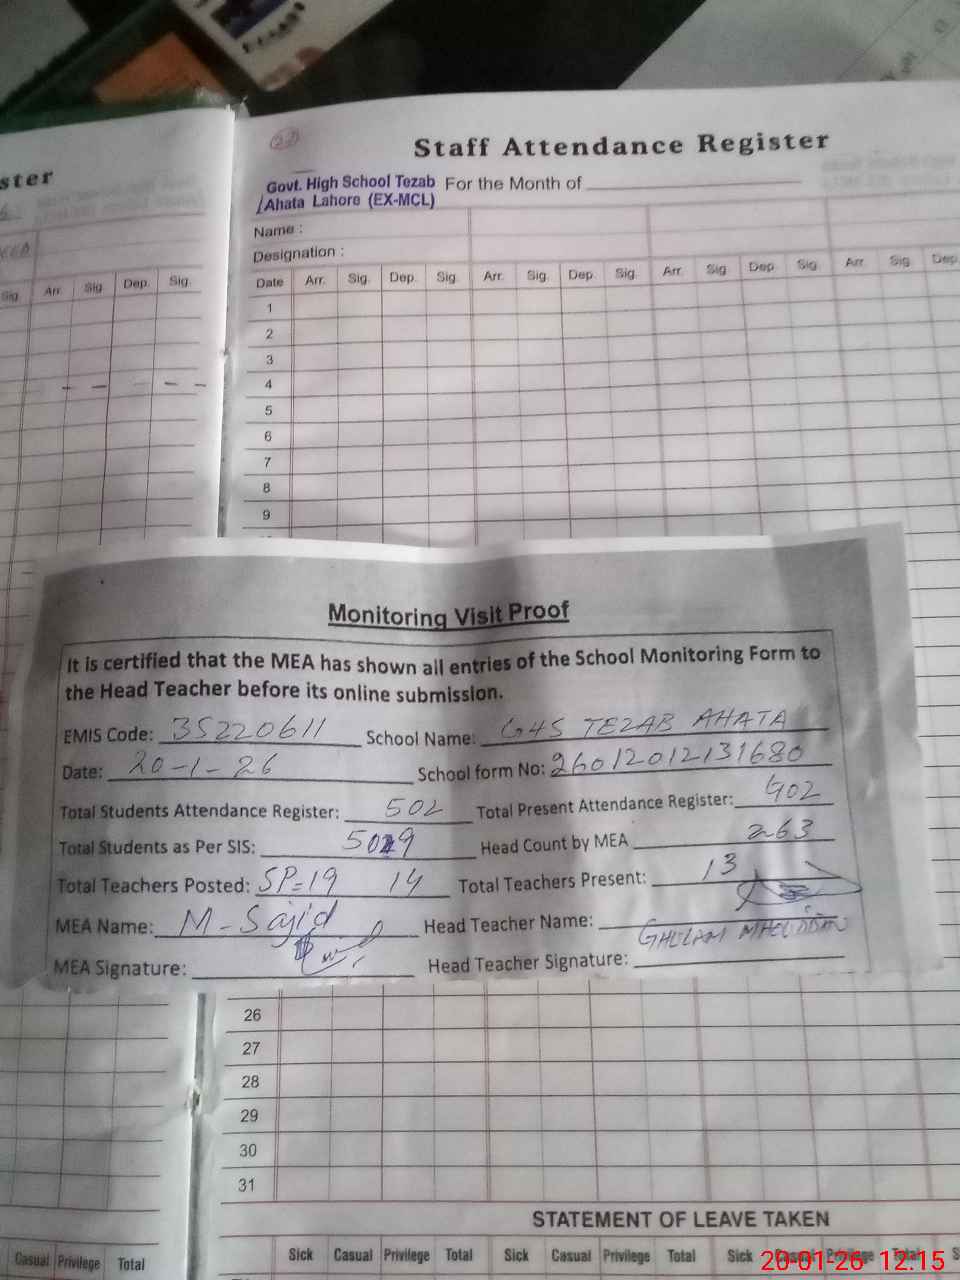 ster
Staff Attendance Register
Govt. High School Tezab For the Month of
Ahata Lahore (EX-MCL)
Name :
Designation :
Date Arr. Sig. Dep. Sig. Arr. Sig. Dep. Sig. Arr. Sig. Dep. Sig. Arr. Sig. Dep.
Sig. Arr. Sig. Dep. Sig.
1
2
3
4
5
6
7
8
9
Monitoring Visit Proof
It is certified that the MEA has shown all entries of the School Monitoring Form to
the Head Teacher before its online submission.
EMIS Code: 35220611 School Name: GHS TEZAB AHATA
Date: 20-1-26 School form No: 26012012131680
Total Students Attendance Register: 502 Total Present Attendance Register: 402
Total Students as Per SIS: Head Count by MEA 263
Total Teachers Posted: SP=19 14 Total Teachers Present: 13
MEA Name: M-Sajid Head Teacher Name: GHULAM
MEA Signature: Head Teacher Signature:
26
27
28
29
30
31
STATEMENT OF LEAVE TAKEN
Casual Privilege Total Sick Casual Privilege Total Sick Casual Privilege Total Sick Casual Privilege Total S
20-01-26 12.15